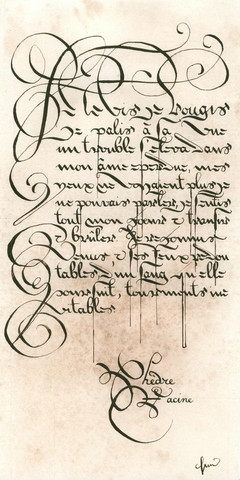 Je le vis, je rougis
Je palis à sa vue
un trouble s'éleva dans
mon âme éperdue, mes
yeux ne voyaient plus je
ne pouvais parler, je sentis
tout mon corps & transir
& brûler. Je reconnus
Venus, & ses feux redou
tables, d'un sang qu'elle
poursuit, tourments iné
vitables
Phèdre
Racine